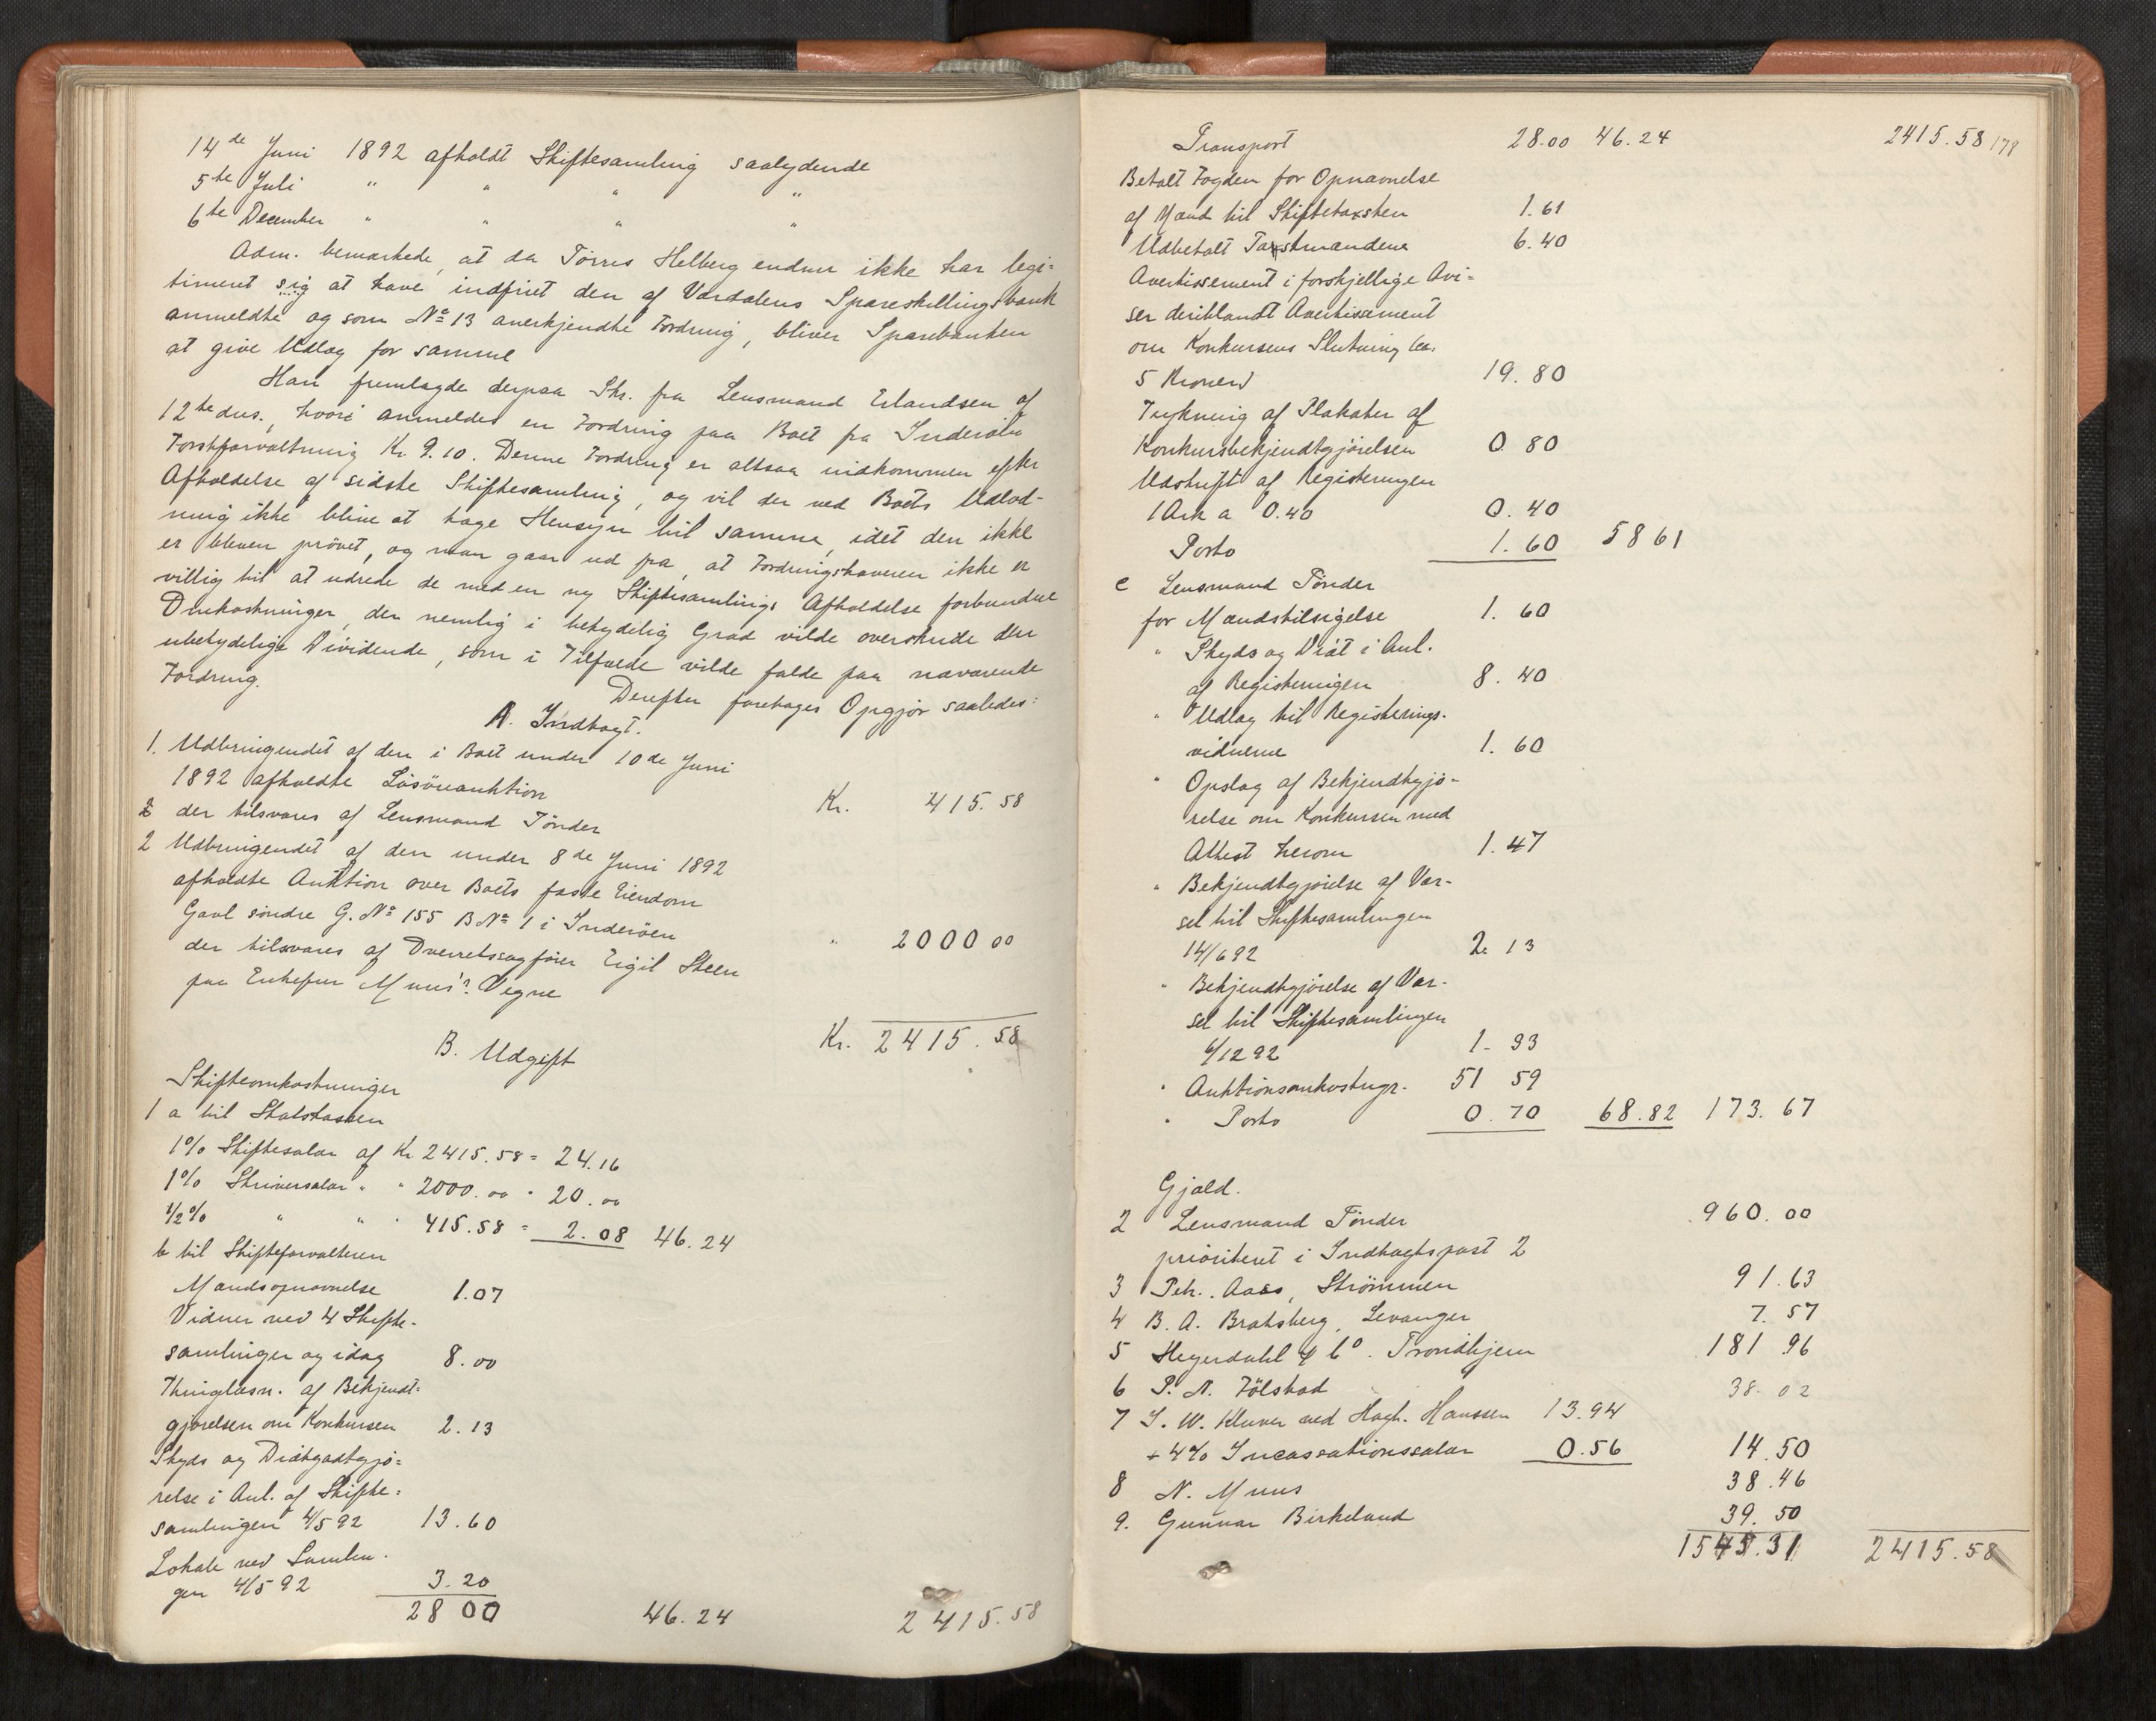 14de Juni 1892 afholdt Skiftesamling saalydende
5te Juli " " " "
6te December " " " "
Adm. bemærkede, at da Törres Helberg endnu ikke har legi=
timeret sig at have indfriet den af Værdalens Spareskillingsbank
anmeldte og som No 13 anerkjendte Fordring, bliver Sparebanken
at give Udlæg for samme
Han fremlagde derpaa Skr. fra Lensmand Erlandsen af
12te dns., hvori anmeldes en Fordring paa Boet fra Inderöens
Forstforvaltning Kr. 9.10. Denne Fordring er altsaa indkommen efter
Afholdelse af sidste Skiftesamling, og vil der ved Boets Udlod-
ning ikke blive at tage Hensyn til samme, idet den ikke
er bleven prövet, og man gaar ud fra, at Fordringshaveren ikke er
villig til at udrede de med en ny Skiftesamlings Afholdelse forbundne
Omkostninger, der nemlig i betydelig Grad vilde overskride den
ubetydelige Dividende, som i Tilfælde vilde falde paa næværende
Fordring.
Derefter foretages Opgjör saaledes:
A. Indtægt.
1. Udbringendet af den i Boet under 10de Juni
1892 afholdte Lösöreauktion Kr. 415.58
der tilsvares af Lensmand Tönder
2 Udbringendet af den under 8de Juni 1892
afholdte Auktion over Boets faste Eiendom
Gaul söndre G. No 155 B No 1 i Inderöen " 2000 00
der tilsvares af Overretssagförer Eigil Steen
paa Enkefru Muus' Vegne
Kr. 2415.58
B. Udgift
Skifteomkostninger
1 a til Statskassen
1% Skiftesalær af Kr. 2415.58 = 24.16
1% Skriversalær " " 2000.00 " 20.00
1/2% " " " 415.58 = 2.08 46.24
b til Skifteforvalteren
Mandsopnævnelse 1.07
Vidner ved 4 Skifte-
samlinger og idag 8.00
Thinglæsn. af Bekjendt=
gjörelsen om Konkursen 2.13
Skyds og Diætgodtgjö=
relse i Anl. af Skifte=
samlingen 4/5 92 13.60
Lokale ved Samlin-
gen 4/5 92 3.20
28 00 46.24 2415.58
Transport 28.00 46.24 2415.58 178
Betalt Fogden for Opnævnelse
af Mænd til Skiftetaxsten 1.61
Udbetalt Taxstmændene 6.40
Avertissement i forskjellige Avi=
ser deriblandt Avertissement
om Konkursens Slutning ca.
5 Kroner 19.80
Trykning af Plakater af
Konkursbekjendtgjörelsen 0 80
Udskrift af Registeringen
1 Ark a 0.40 0.40
Porto 1.60 58 61
c Lensmand Tönder
for Mandstilsigelse 1.60
" Skyds og Diæt i Anl.
af Registeringen 8.40
" Udlæg til Registerings-
vidnerne 1.60
" Opslag af Bekjendtgjö-
relse om Konkursen med
Attest herom 1.47
" Bekjendtgjörelse af Var-
sel til Skiftesamlingen
14/6 92 2.13
" Bekjendtgjörelse af Var-
sel til Skiftesamlingen
6/12 92 1-33
" Auktionsomkostngr. 51 59
" Porto 0.70 68.82 173.67
Gjæld.
2 Lensmand Tönder 960.00
prioriteret i Indtægtspost 2
3 Petr. Aass, Strömmen 91.63
4 B. A. Bratsberg, Levanger 7.57
5 Heyerdahl & Co. Trondhjem 181 96
6 P. N. Fölstad 38.02
7 I. W. Klüver ved Hagb. Hanssen 13.94
+ 4% Incassationssalær 0.56 14.50
8 N. Muus 38.46
9. Gunnar Birkeland 39.50
1545.31 2415.58